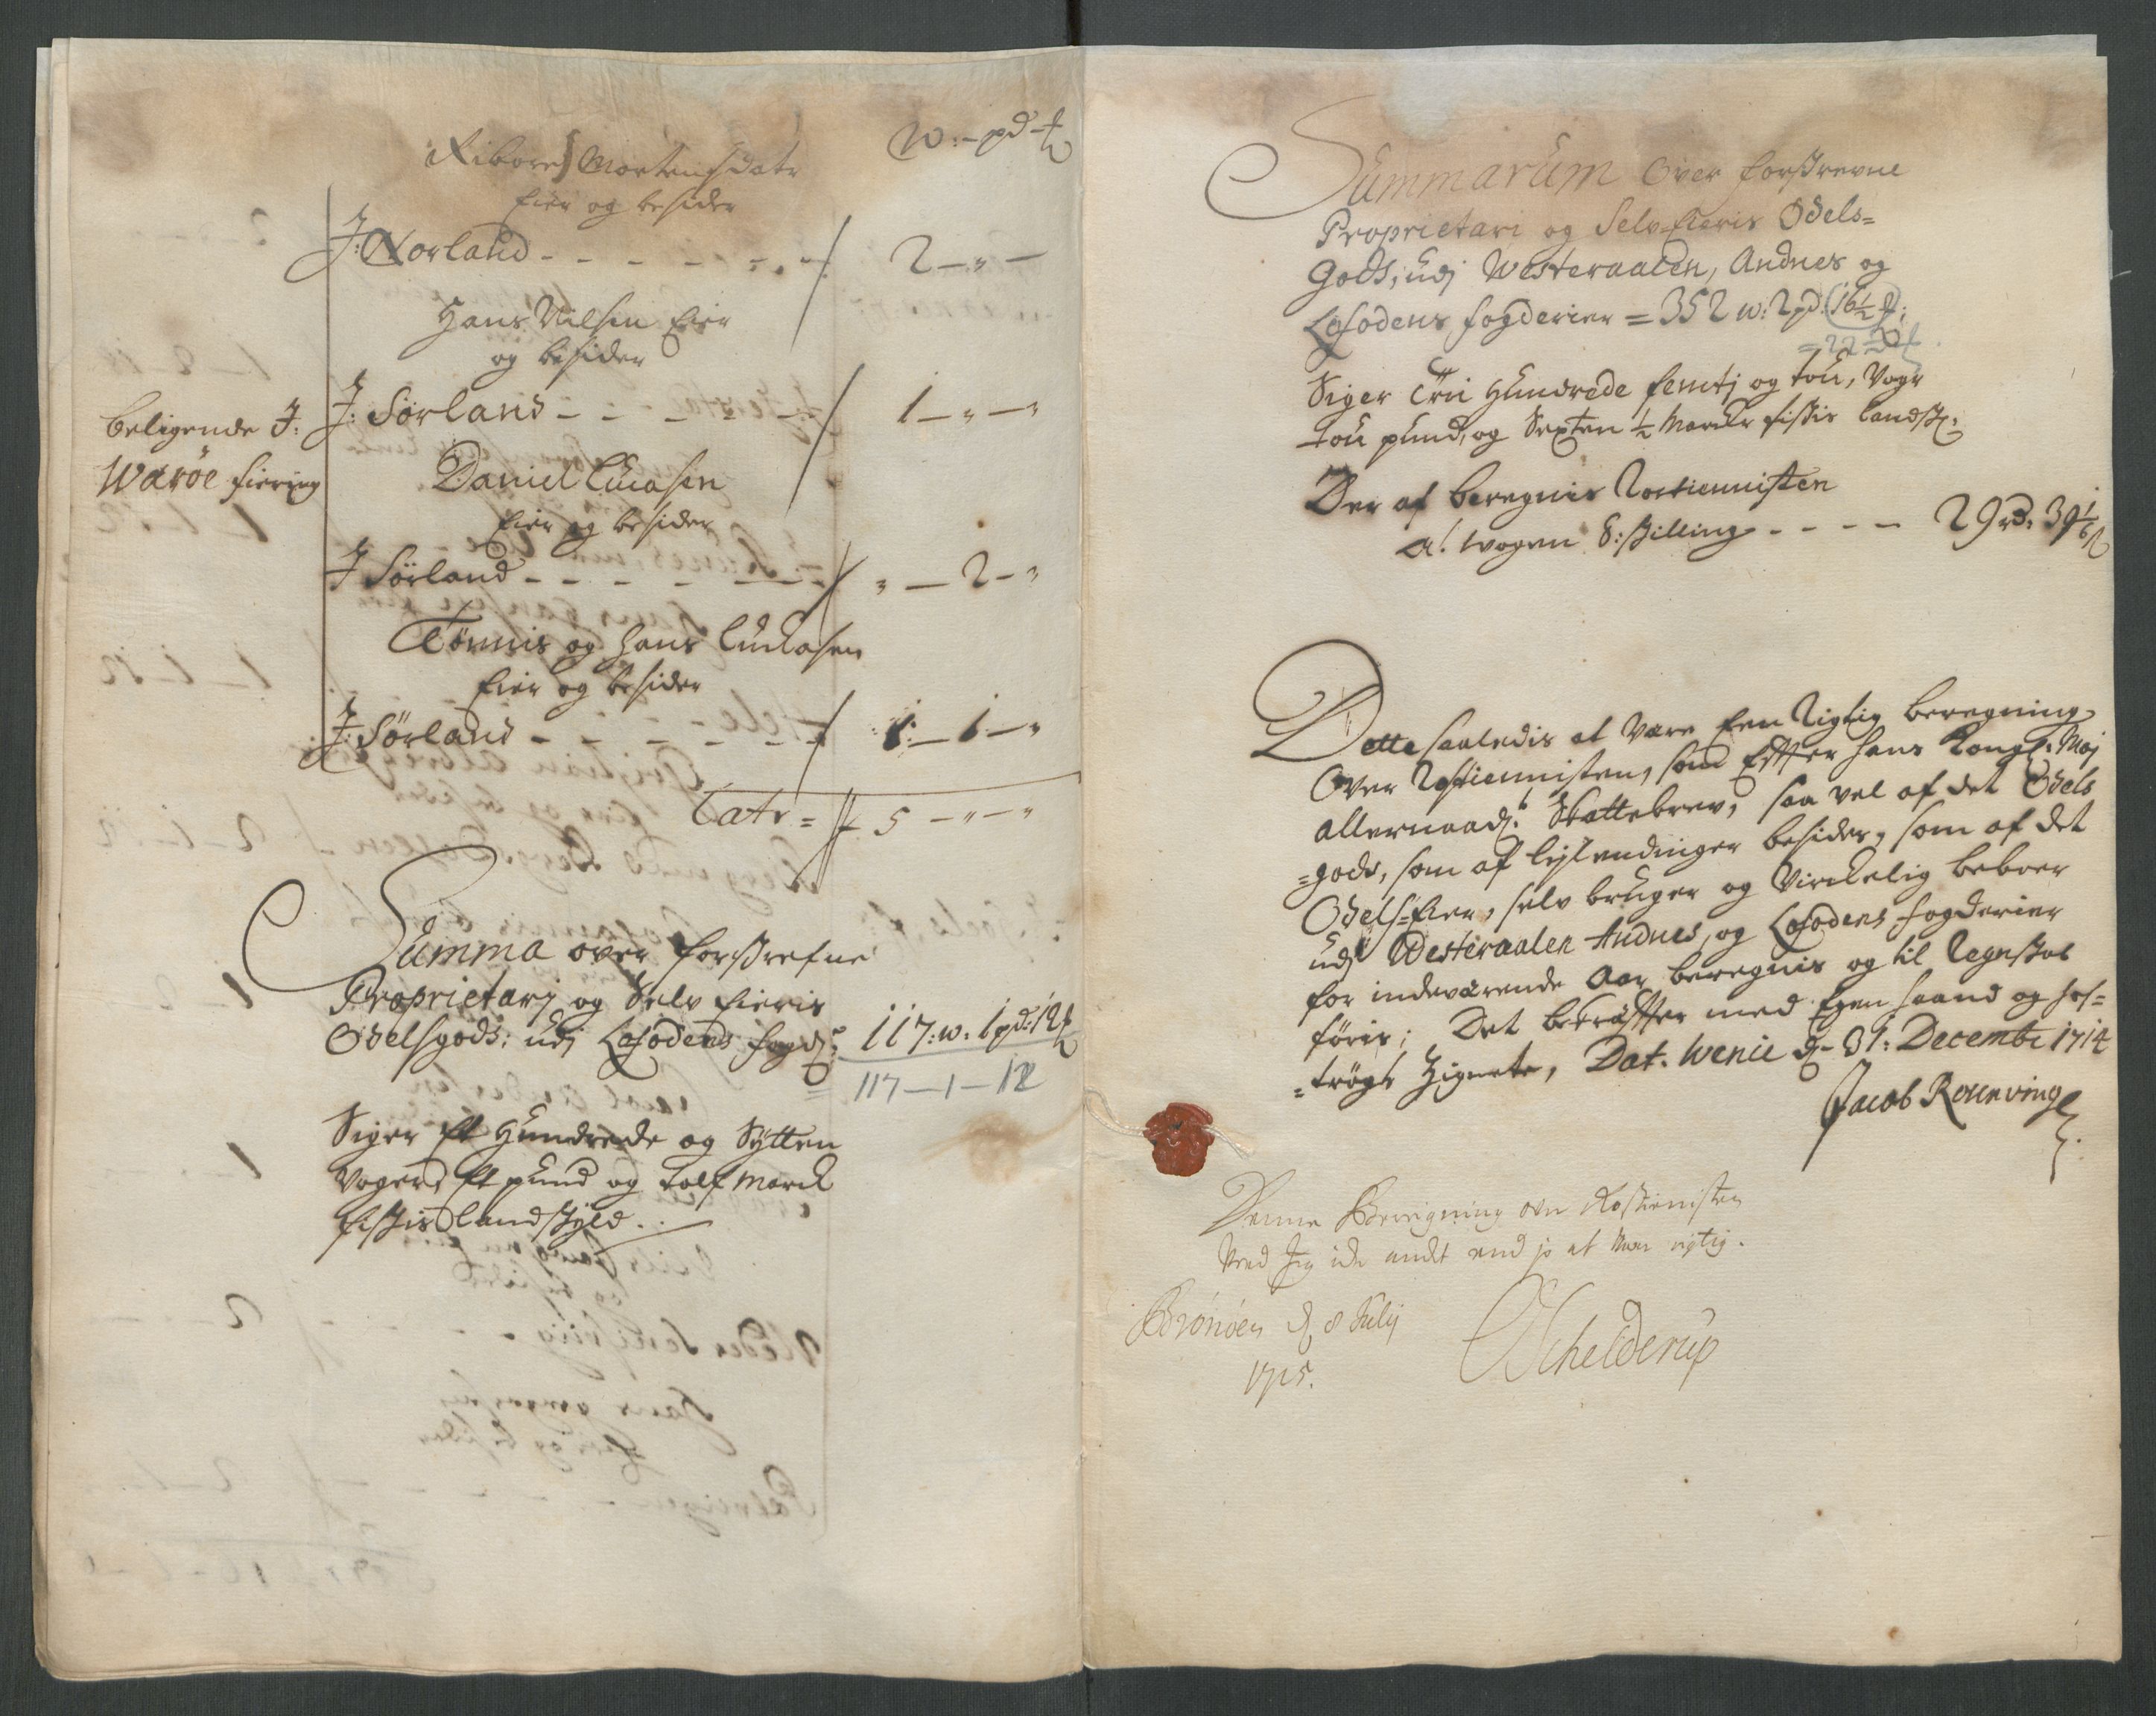 w: – pd – 
Mortensdatr
Eier og besider
J: Norland - - - - - - - 2 – „ –
Hans Nilsen Eier
og besider
J: Sörland - - - - - - 1 – „ – „
beligende J:
Waröe fiering
Daniel Lucasen
Eier og besider
J Sörland - - - - - - „ – 2 – „
Tönnis og Hans Luckasen
Eier og besider
J: Sörland - - - - - - 1 – 1 – „
Latr = 5 – „ – „
Summa over forskrefne
Proprietarj og Selv Eieris
Odelsgods: udj Lofodens fogd: 117: w: 1 pd: 12
117 – 1 – 12
Siger Et Hundrede og Sytten
Voger, Et pund og tolf Marck
fiskis landskyld.
Summarum over forskrevne
Proprietari og Selv-Eieris Odels=
Gods, udj Westeraalen, Andnes og
Lofodens fogderier = 352 w: 2 pd: 16½
Siger Trei Hundrede femtj og tou, Voger
tou pund, og Sexten ½ Marcker fiskis landsk:
Der af beregnis Rostiennisten
a! wogen 8: skilling - - - - 29 rd:
Dette saaledis at være Een Rigtig beregning
Over Rostiennisten, som Effter Hans Kongl: Maj
allernaad: Skattebrev, saa vel af det Odels
=gods, som af besider, som af det
Odels=Eier, selv bruger og Virckelig beboer
udj Westeraalen Andnes, og Lofodens fogderier
for indeværende Aar beregnis og til Regnskab
föris; Det bekräffter med Egen Haand og hos=
=trögt Zignete, Dat. Wenie d- 31: Decembr 1714
Jacob
Denne Beregning over Rostienisten
Veed Jeg icke andt end jo at være rigtig.
Brönöen d 8 Julij
1715.
Schelderup